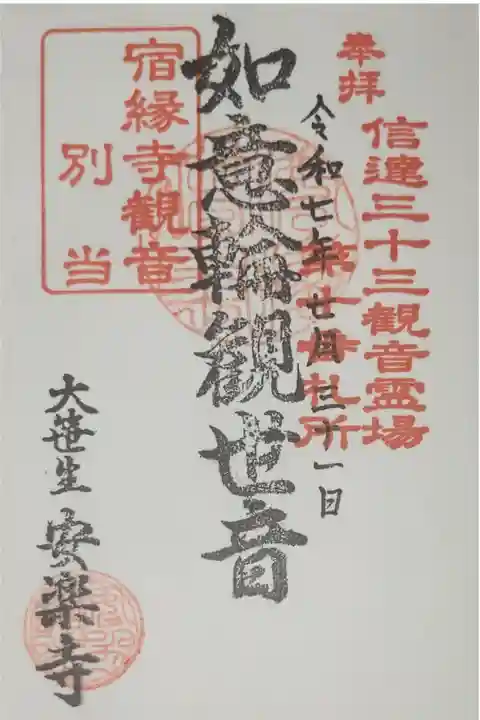 奉拝
信達三十三観音霊場
第十番札所
令和七年廿月三十一日
如意輪観世音
宿縁寺観音
別当
大笹生 安楽寺